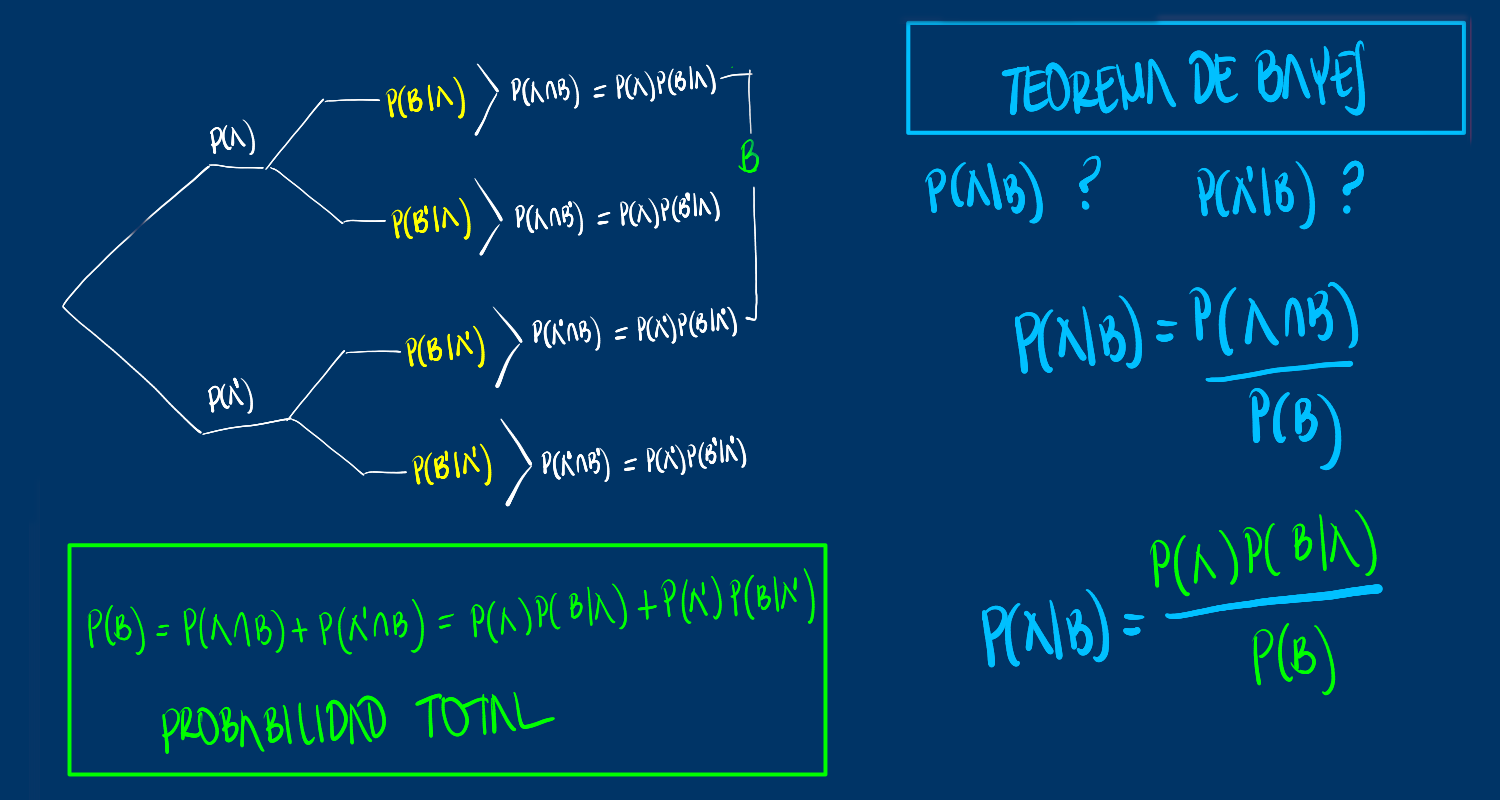 P(A)
P(B|A) P(A∩B) = P(A)P(B|A)
B
P(B'|A) P(A∩B') = P(A)P(B'|A)
P(A')
P(B|A') P(A'∩B) = P(A')P(B|A')
P(B'|A') P(A'∩B') = P(A')P(B'|A')
P(B) = P(A∩B) + P(A'∩B) = P(A)P(B|A) + P(A')P(B|A')
PROBABILIDAD TOTAL
TEOREMA DE BAYES
P(A|B) ? P(A'|B) ?
P(A|B) = P(A∩B)
P(B)
P(A|B) = P(A)P(B|A)
P(B)